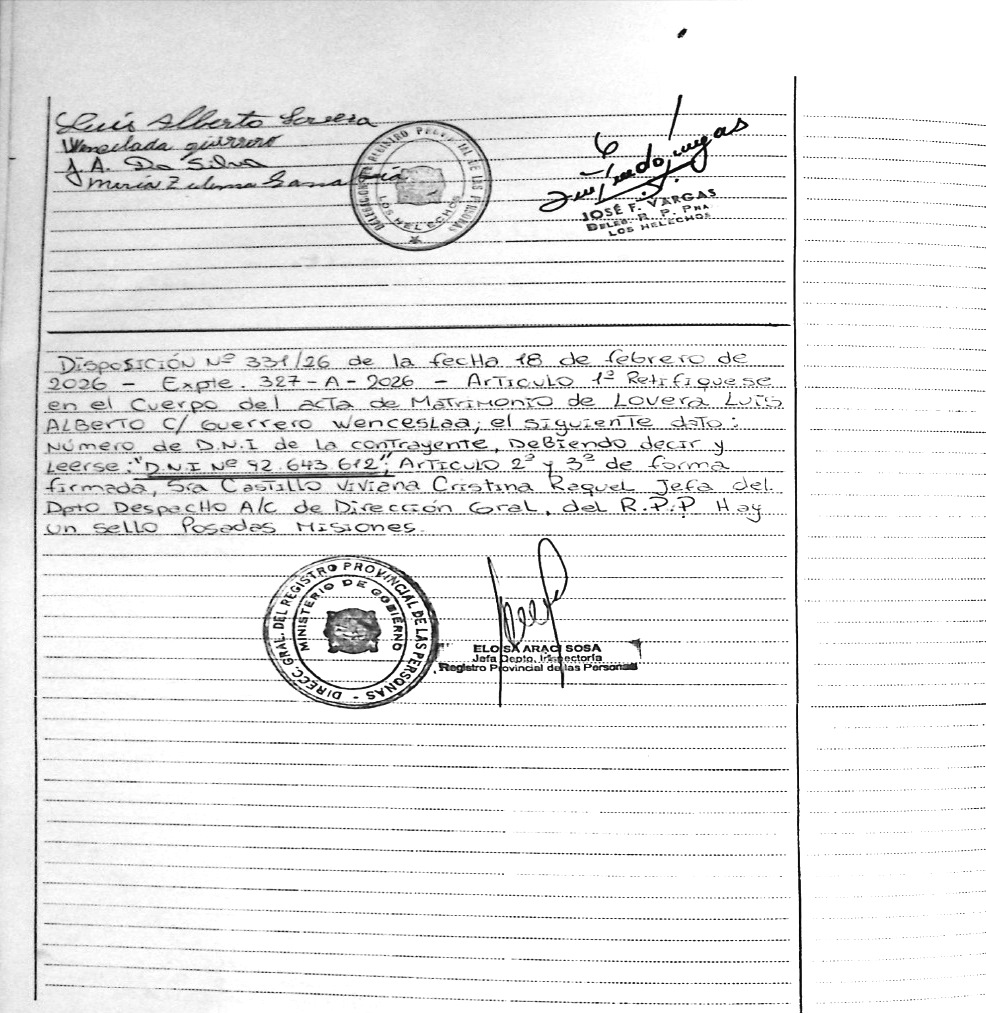 Luis Alberto Lovera
Wenceslada guerrero
J. A. Da Silva
Maria Zulema
DELEGACION DEL REGISTRO PROVINCIAL DE LAS PERSONAS
LOS HELECHOS
JOSÉ F. VARGAS
DELEG. R. P. PNA
LOS HELECHOS
DISPOSICIÓN Nº 331/26 de la fecha 18 de febrero de
2026 - Expte. 327-A-2026 - ARTICULO 1º Retifiquese
en el Cuerpo del acta de Matrimonio de Lovera Luis
ALBERTO C/ Guerrero Wenceslaa; el siguiente dato:
Número de D.N.I de la contrayente, DeBiendo decir y
Leerse: "D.N.I Nº 92.643.612"; Articulo 2º y 3º de forma
firmada, Sra Castillo Viviana Cristina Raquel Jefa del
Dpto Despacho A/C de Dirección Gral. del R.P.P Hay
un sello Posadas Misiones.
DIRECC. GRAL. DEL REGISTRO PROVINCIAL DE LAS PERSONAS
MINISTERIO DE GOBIERNO
ELOISA ARACI SOSA
Jefa Depto. Inspectoría
Registro Provincial de las Personas